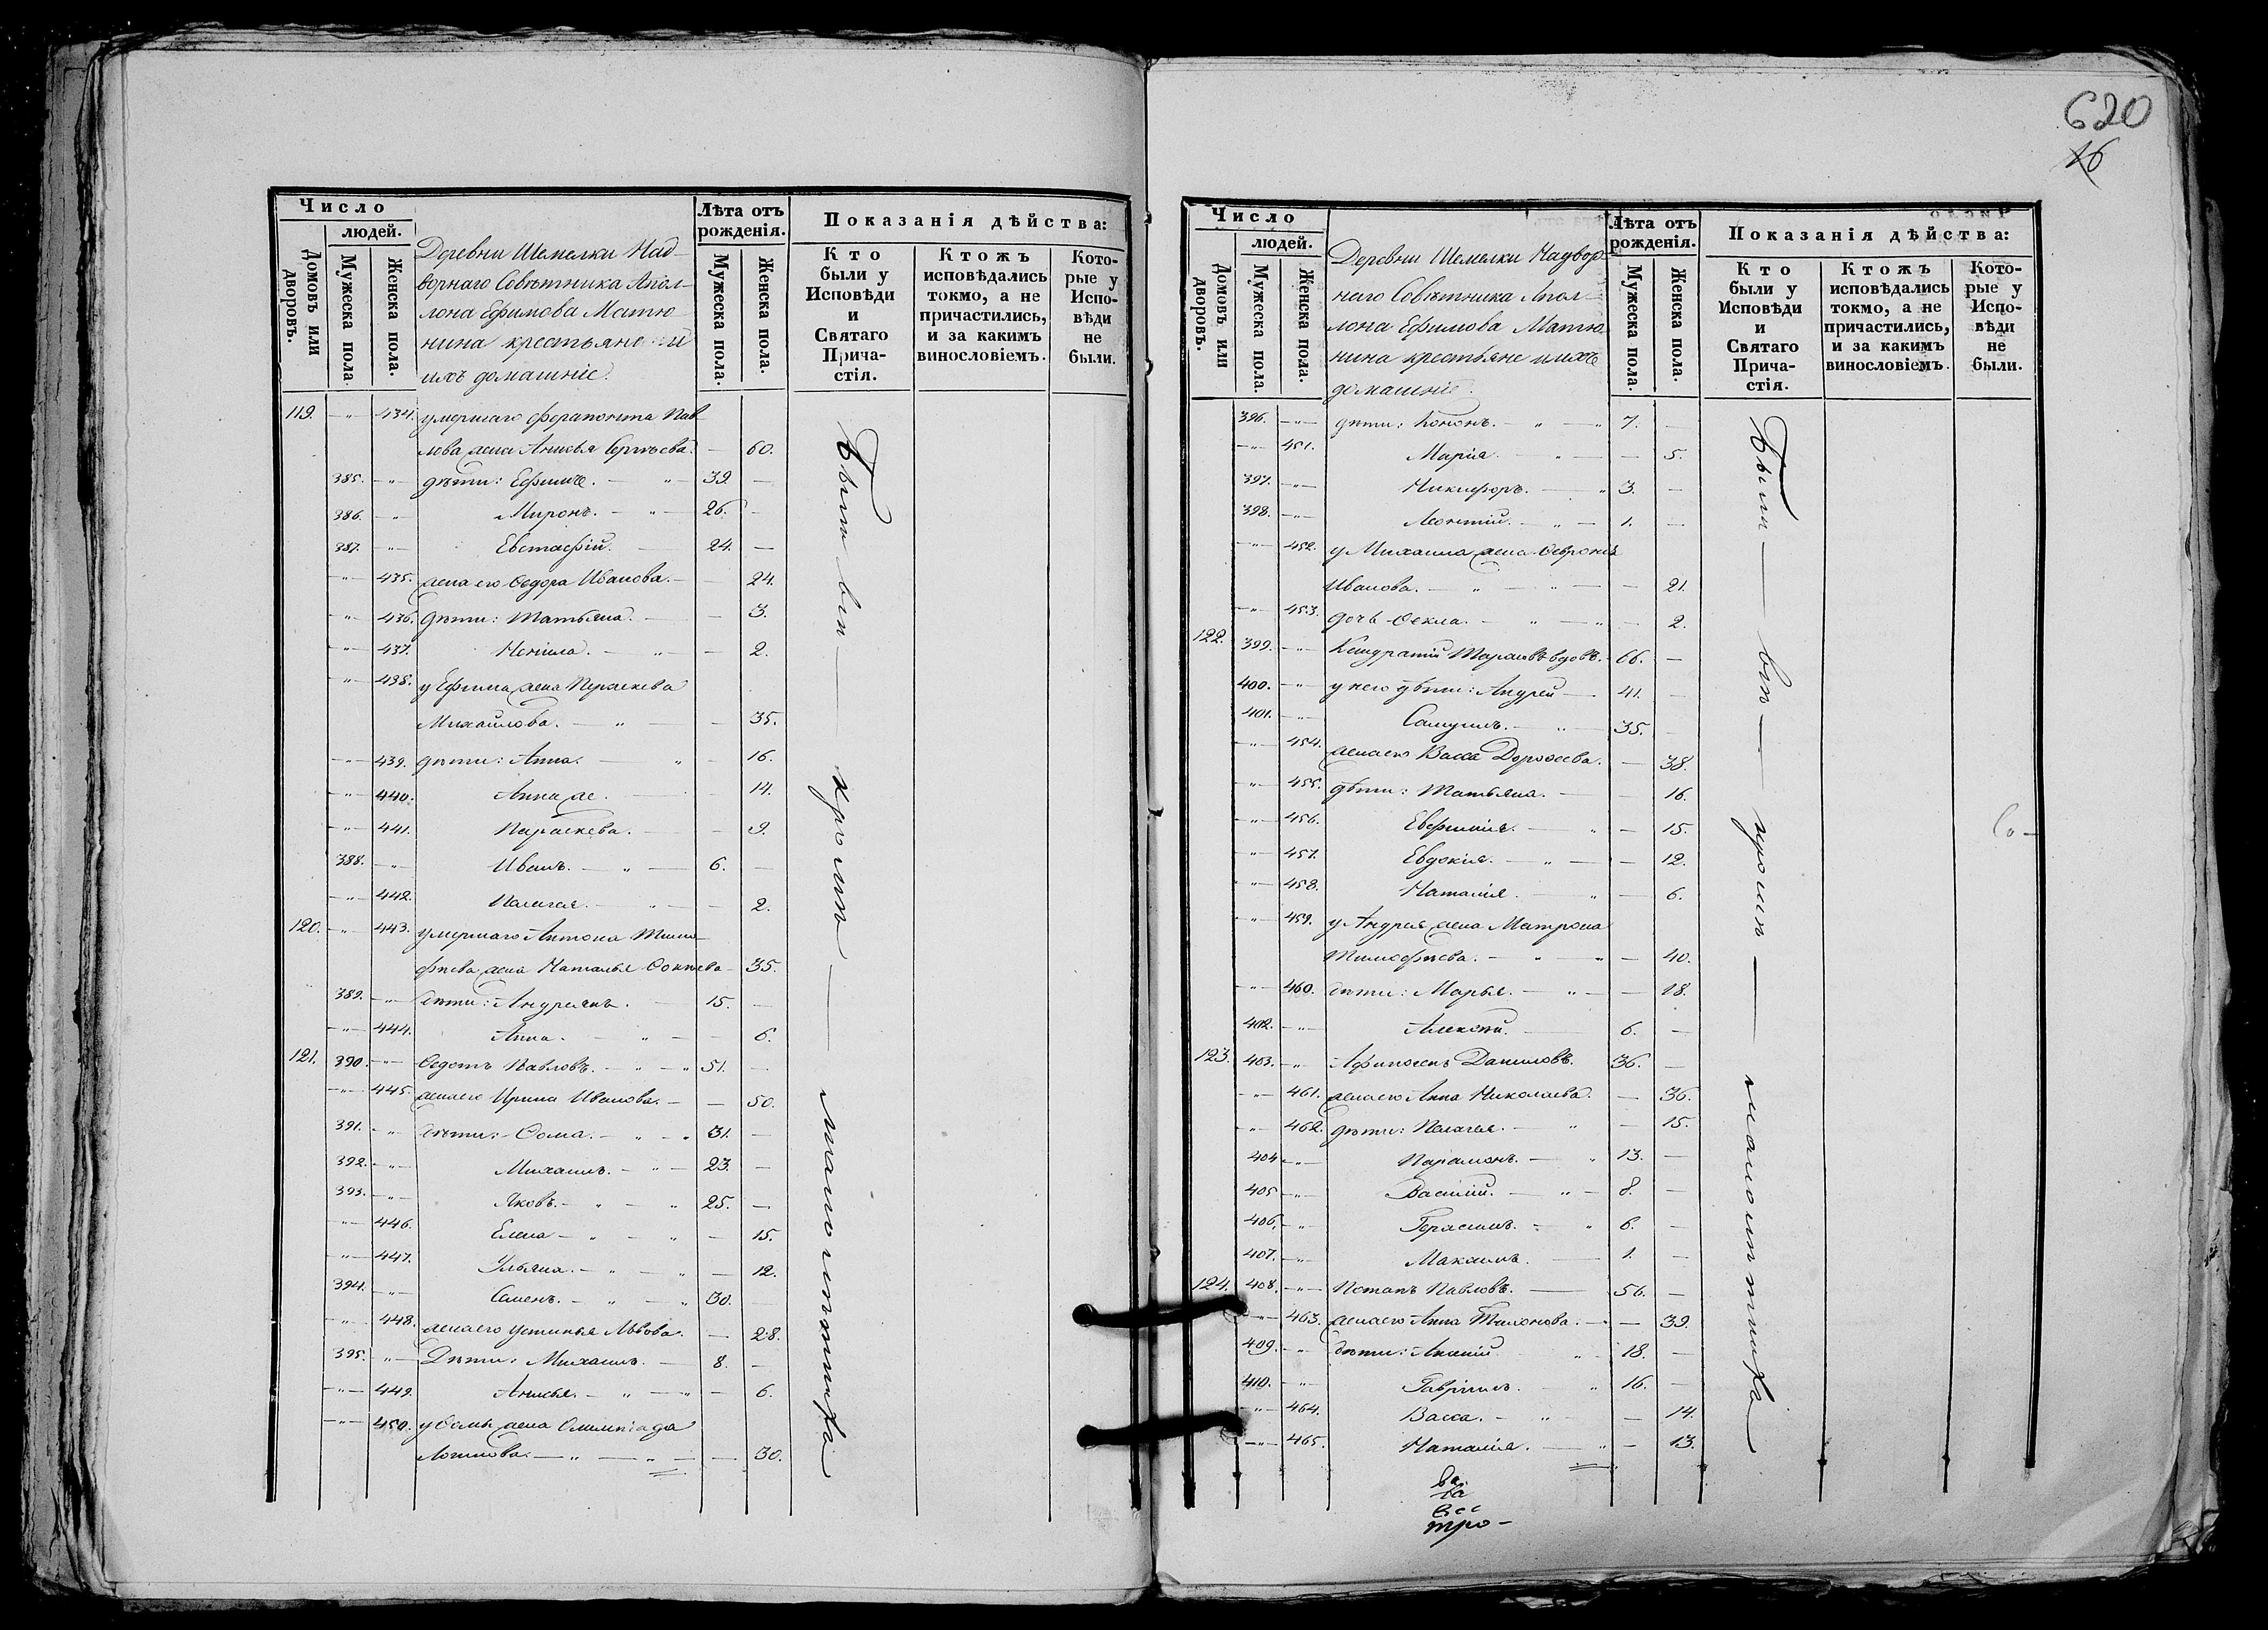 620
16
Число
людей.
Домовъ или дворовъ.
Мужеска пола
Женска пола.
Деревни Шемелки Над-
ворнаго Совѣтника Апол-
лона Ефимова Матю-
нина крестьяне и
ихъ домашніе.
Лѣта отъ рожденія.
Мужеска пола.
Женска пола.
Показанія дѣйства:
Кто были у Исповѣди и Святаго Прича-стія.
Ктожъ исповѣдались токмо, а не причастились, и за какимъ винословіемъ.
Кото-рые у Испо-вѣди не были.
119. — " — 434. умершаго Ферапонта Пав-
лова жена Анисья Сергѣева. — 60.
385. — " — дѣти: Ефимъ. — " — 39 —
386. — " — Миронъ. — " — 26. —
387. — " — Евстафій. — 24. —
— " — 435. жена его Ѳедора Иванова. — — 24.
— " — 436. дѣти: Татьяна. — — 3.
— " — 437. Неніла. — " — — 2.
— " — 438. у Ефима жена Параскева
Михайлова. — " — — 35.
— " — 439. дѣти: Анна. — " — 16.
— " — 440. Анна же. — — 14.
— " — 441. Параскева. — — 9.
388. — " — Иванъ. — " — 6. —
— " — 442. Пелагея. — " — — 2.
120. — " — 443. умершаго Антона Тимо-
фѣева жена Наталья Фокѣева — 35.
389. — " — дѣти: Андреянъ. — 15. —
— " — 444. Анна. — " — — 6.
121. 390. — " — Ѳедотъ Павловъ. — " — " 51. —
— " — 445. жена его Ирина Иванова. — — 50.
391. — " — дѣти: Ѳома. — " — " 31. —
392. — " — Михаилъ. — " — 23. —
393. — " — Яковъ. — " — " 25. —
— " — 446. Елена — " — " — 15.
— " — 447. Ульяна. — " — " — 12.
394. — " — Семенъ. — " — " 30. —
— " — 448. жена его Устинья Львова. — 28.
395. — " — Дѣти: Михаилъ. — 8. —
— " — 449. Анисья. — " — " — 6.
— " — 450. у Ѳомы жена Олимпіада
Логинова. — " — " — — 30.
Были вси — кромѣ — малолѣтнихъ
Число
людей.
Домовъ или дворовъ.
Мужеска пола.
Женска пола.
Деревни Шемелки Надвор-
наго Совѣтника Апол-
лона Ефимова Матю-
нина крестьяне и ихъ
домашніе.
Лѣта отъ рожденія.
Мужеска пола.
Женска пола.
Показанія дѣйства:
Кто были у Исповѣди и Святаго Прича-стія.
Ктожъ исповѣдались токмо, а не причастились, и за какимъ винословіемъ.
Кото-рые у Испо-вѣди не были.
396. — " — дѣти: Кононъ. — " — " 7. —
— " — 451. Марія. — " — — 5.
397. — " — Никифоръ. — " 3. —
398. — " — Леонтій. — " — 1. —
— " — 452. у Михаила жена Ѳевронія
Иванова. — " — " — — 21.
— " — 453. дочь Ѳекла. — " — " — 2.
122. 399. — " — Кандратій Тарасовъ вдовъ. 66. —
400. — " — у него дѣти: Андрей — 41. —
401. — " — Самуилъ. — " — 35. —
— " — 454. жена его Васса Дороѳеева. — 38.
— " — 455. дѣти: Татьяна. — — 16.
— " — 456. Евфимія. — " — 15.
— " — 457. Евдокія. — " — — 12.
— " — 458. Наталія. — " — 6.
— " — 459. у Андрея жена Матрона
Тимофѣева. — " — " — 40.
— " — 460. дѣти: Марья. — " — — 18.
402. — " — Алексѣй. — 6. —
123. 403. — " — Афиногенъ Даниловъ. 36. —
— " — 461. жена его Анна Николаева. — 36.
— " — 462. дѣти: Пелагея. — " — 15.
404 — " — Парамонъ. — " 13. —
405 — " — Василій. — " — 8. —
406. — " — Герасимъ. — " 6. —
407. — " — Максимъ. — 1. —
124. 408. — " — Потапъ Павловъ. — 56. —
— " — 463. жена его Анна Тихонова. — — 39.
409. — " — дѣти: Ананій — " — 18. —
410. — " — Гавріилъ. — " 16. —
— " — 464. Васса. — " — — 14.
— " — 465. Наталія. — " — 13.
Были — вси — кромѣ — малолѣтнихъ
Со-
тро-